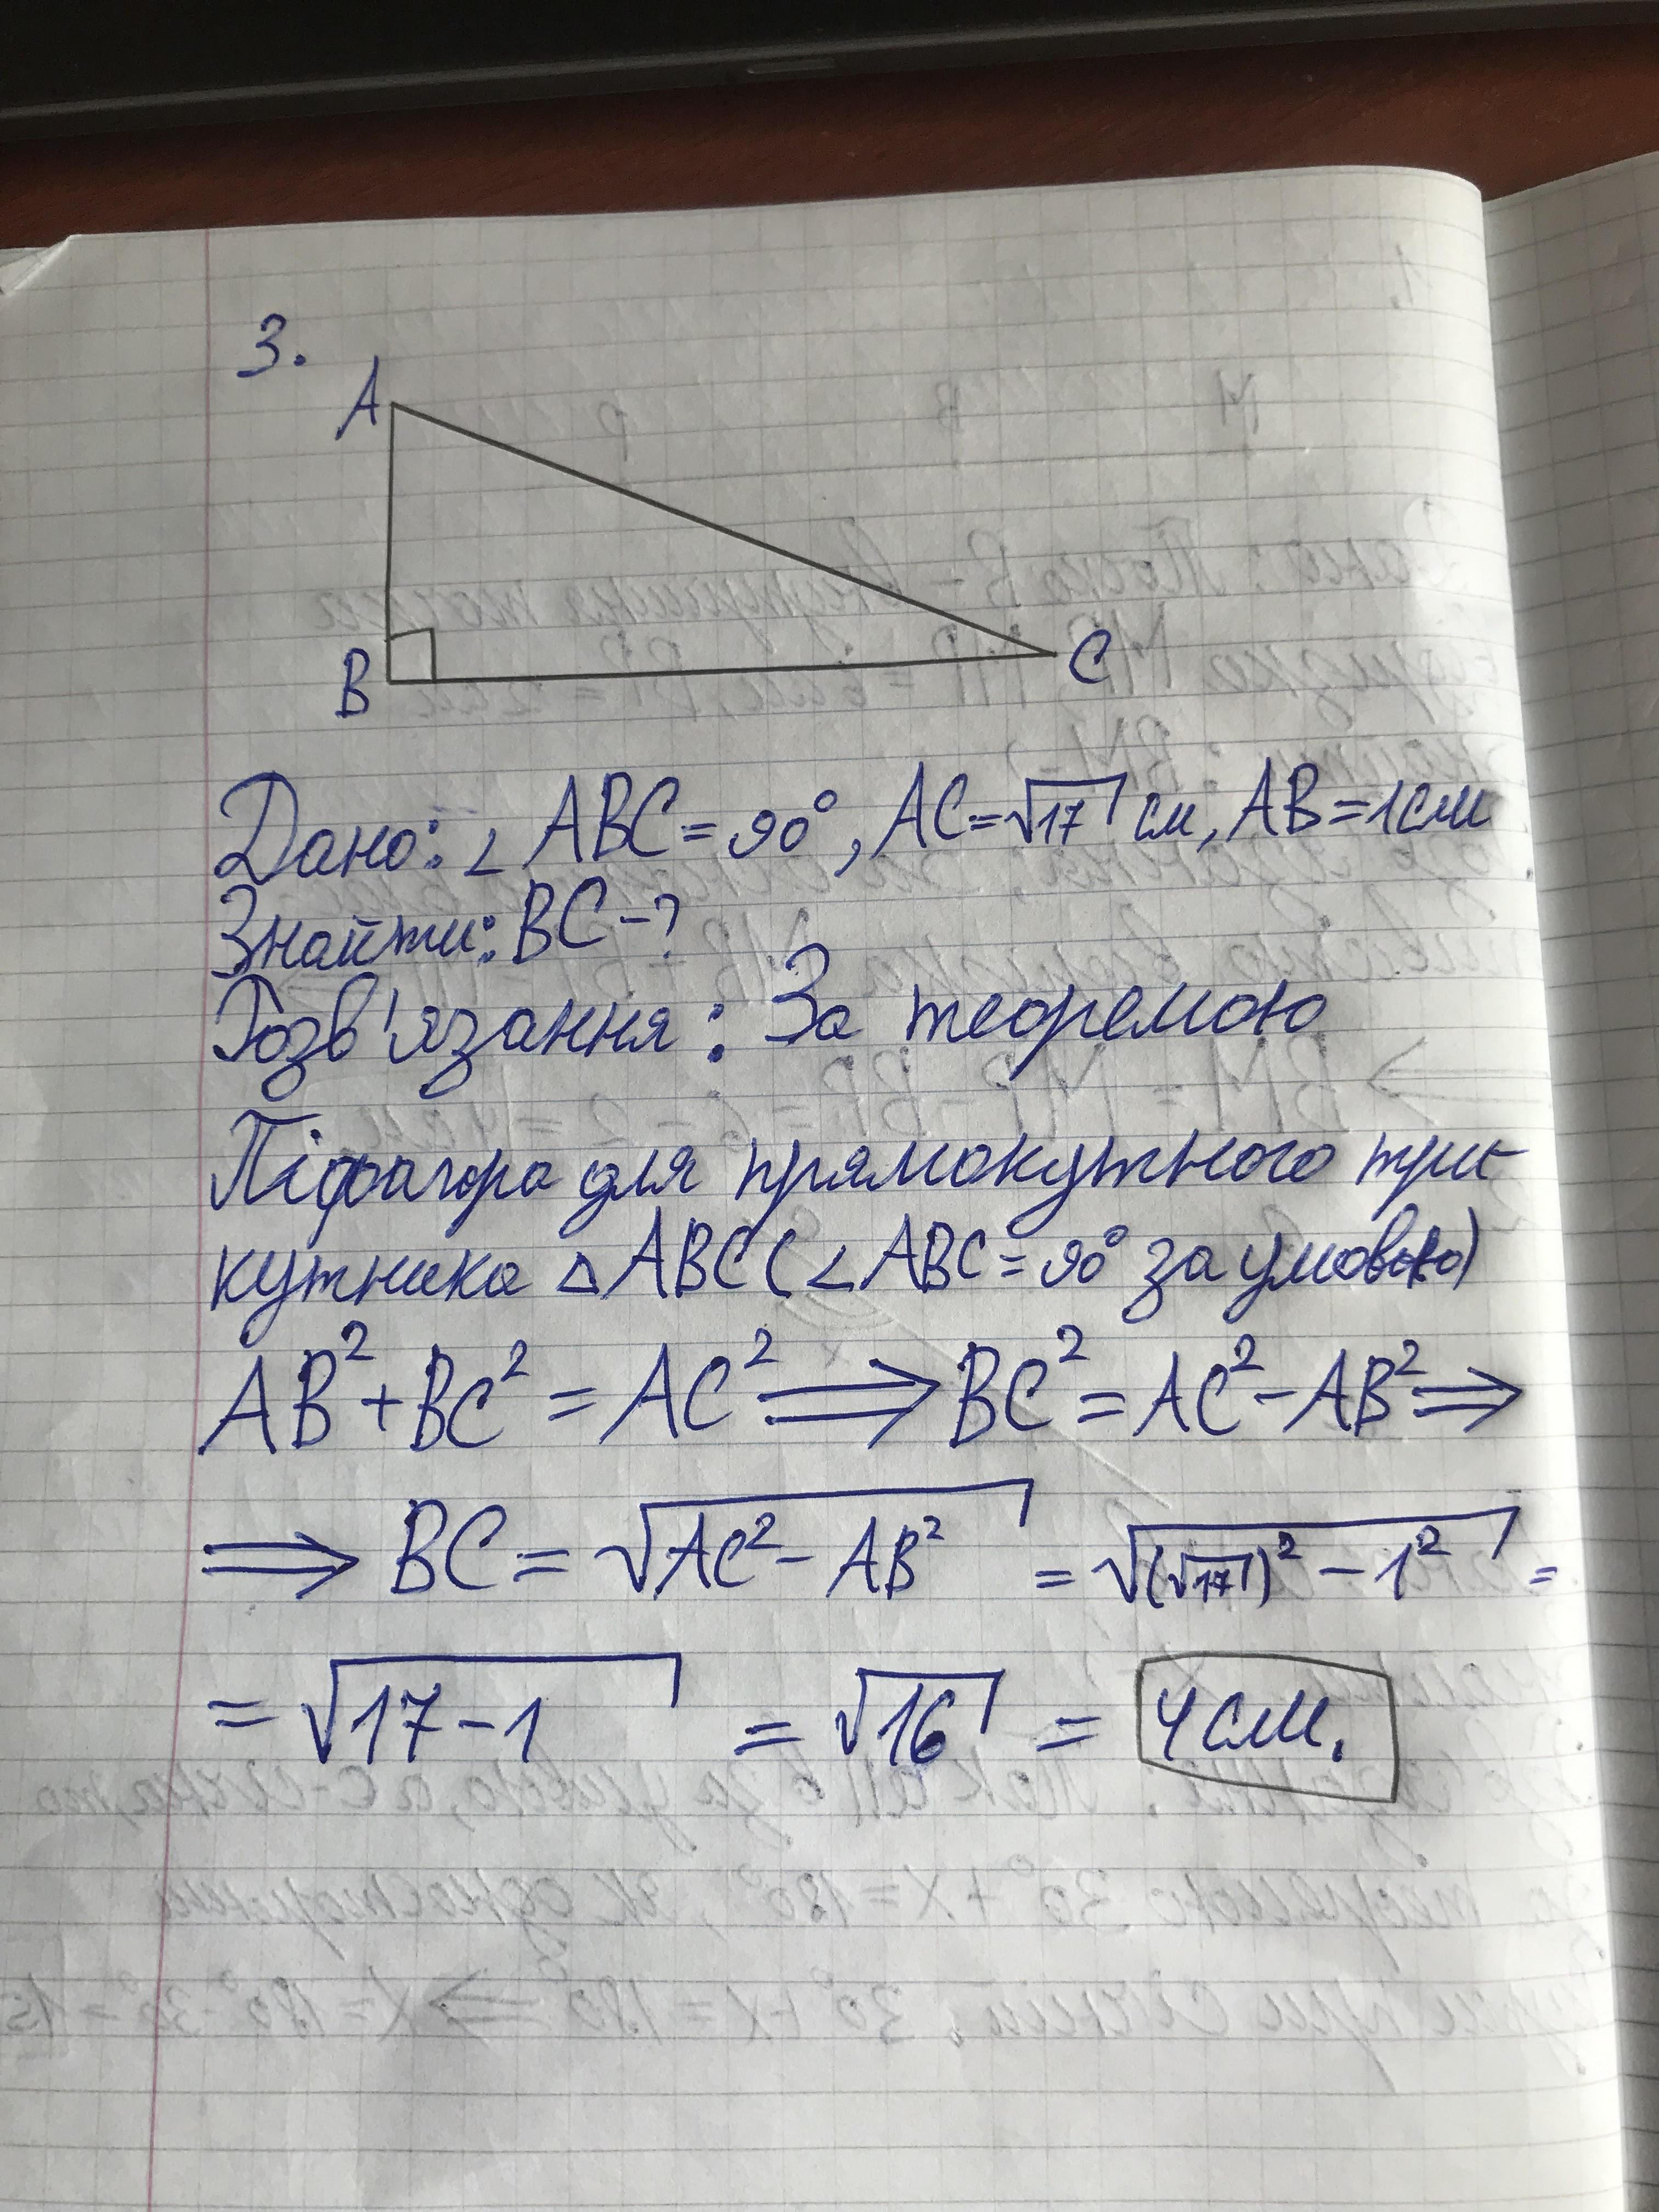 3.
A
B
C
Дано: ∠ ABC = 90°, AC = √17 см, AB = 1 см
Знайти: BC - ?
Розв'язання: За теоремою
Піфагора для прямокутного три-
кутника △ ABC (∠ ABC = 90° за умовою)
AB² + BC² = AC² ⟹ BC² = AC² - AB² ⟹
⟹ BC = √AC² - AB² = √(√17)² - 1² =
= √17 - 1 = √16 = 4 см.